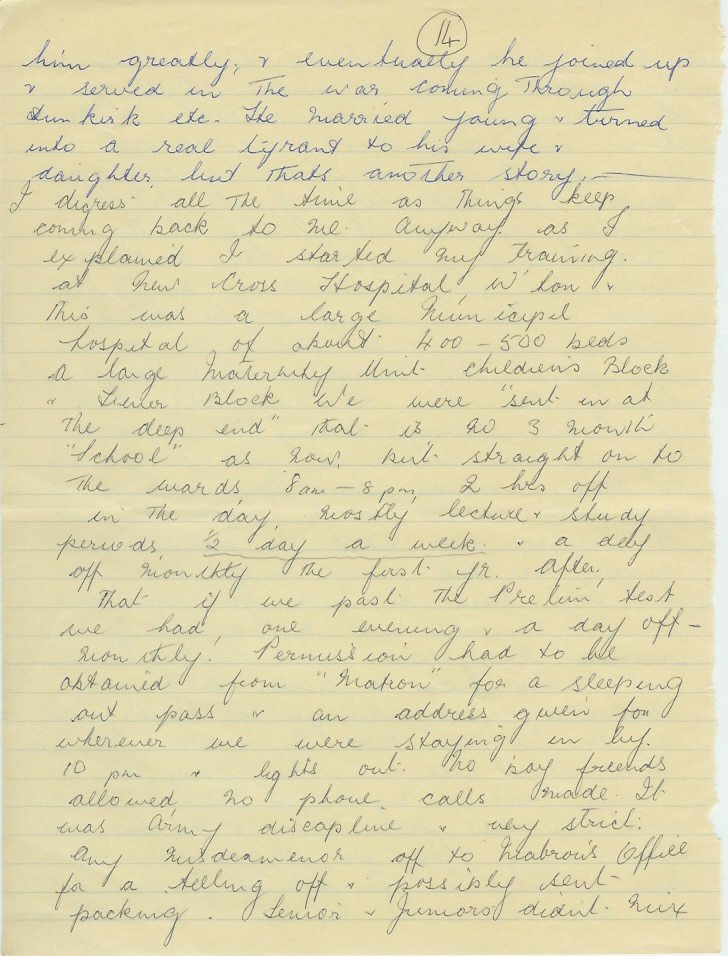 14
him greatly, & eventually he joined up
& served in The war coming Through
Dunkirk etc. He married young & turned
into a real tyrant to his wife &
daughter, but thats another story. —
I digress all The time as Things keep
coming back to me. Anyway as I
explained I started my Training.
at New Cross Hospital, W'ton &
This was a large Municipel
hospital of about 400 - 500 beds
a large Maternity Unit childrens Block
& Block We were "sent in at
The deep end" that is no 3 month
"School" as now, but straight on to
The wards 8am - 8pm, 2 hrs off
in The day, mostly lecture & study
periods, ½ day a week. & a day
off monthly The first yr. After.
That if we past The Prelim test
we had, one evening & a day off -
monthly! Permission had to be
obtained from "Matron" for a sleeping
out pass & an address given for
wherever we were staying in by.
10 pm & lights out. No boy friends
allowed, no phone calls made. It
was Army discapline & very strict.
Any misdeamenor off to Matron's Office
for a telling off & possibly sent
packing. Senior & Juniors didn't mix